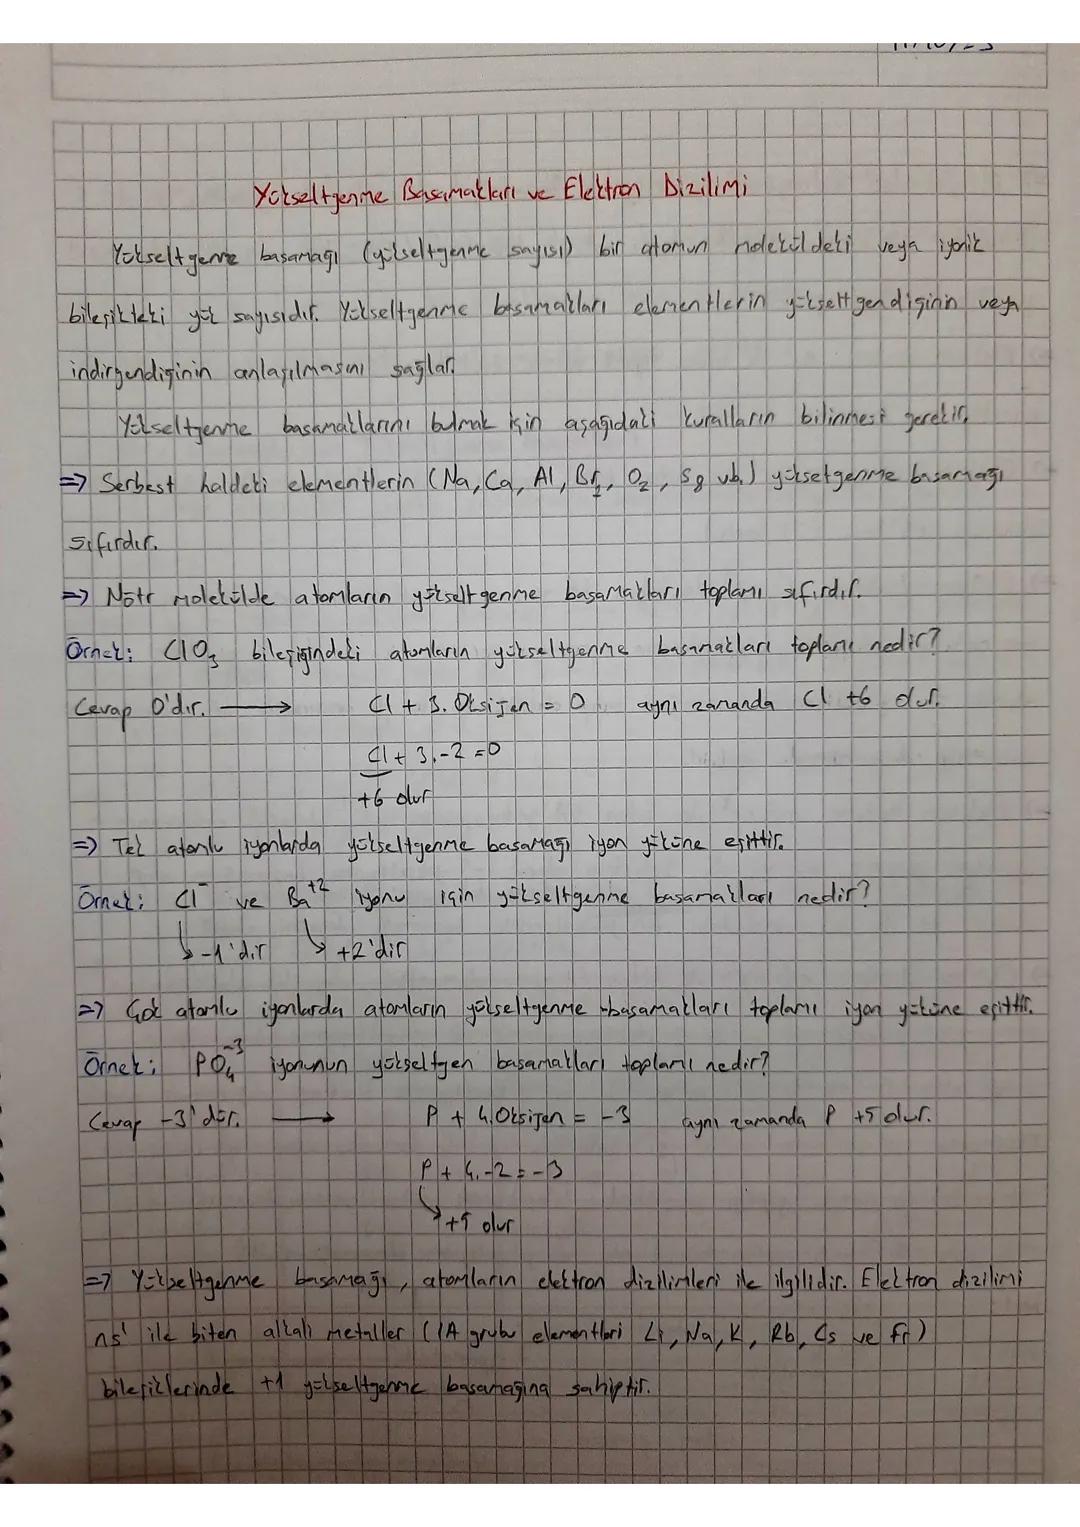 Yükseltgenme Basamakları ve Elektron Dizilimi
Yükseltgenme basamağı (yükseltgenme sayısı) bir atomun moleküldeki veya iyonik
bileşikteki yük sayısıdır. Yükseltgenme basamakları elementlerin yükseltgendiğinin veya
indirgendiğinin anlaşılmasını sağlar.
Yükseltgenme basamaklarını bulmak için aşağıdaki kuralların bilinmesi gerekir.
=> Serbest haldeki elementlerin (Na, Ca, Al, Br₂, O₂, S₈ vb.) yüksetgenme basamağı
sıfırdır.
=> Nötr molekülde atomların yükseltgenme basamakları toplamı sıfırdır.
Örnek: ClO₃ bileşiğindeki atomların yükseltgenme basamakları toplamı nedir?
Cevap 0'dır. → Cl + 3. Oksijen = 0 aynı zamanda Cl +6 olur.
Cl + 3.-2 = 0
+6 olur
=> Tek atomlu iyonlarda yükseltgenme basamağı iyon yüküne eşittir.
Örnek: Cl⁻ ve Ba⁺² iyonu için yükseltgenme basamakları nedir?
↳ -1'dir ↳ +2'dir
=> Çok atomlu iyonlarda atomların yükseltgenme basamakları toplamı iyon yüküne eşittir.
Örnek: PO₄⁻³ iyonunun yükseltgen basamakları toplamı nedir?
Cevap -3'dür. → P + 4.Oksijen = -3 aynı zamanda P +5 olur.
P + 4.-2 = -3
↳ +5 olur
=> Yükseltgenme basamağı, atomların elektron dizilimleri ile ilgilidir. Elektron dizilimi
ns¹ ile biten alkali metaller (1A grubu elementleri Li, Na, K, Rb, Cs ve Fr)
bileşiklerinde +1 yükseltgenme basamağına sahiptir.